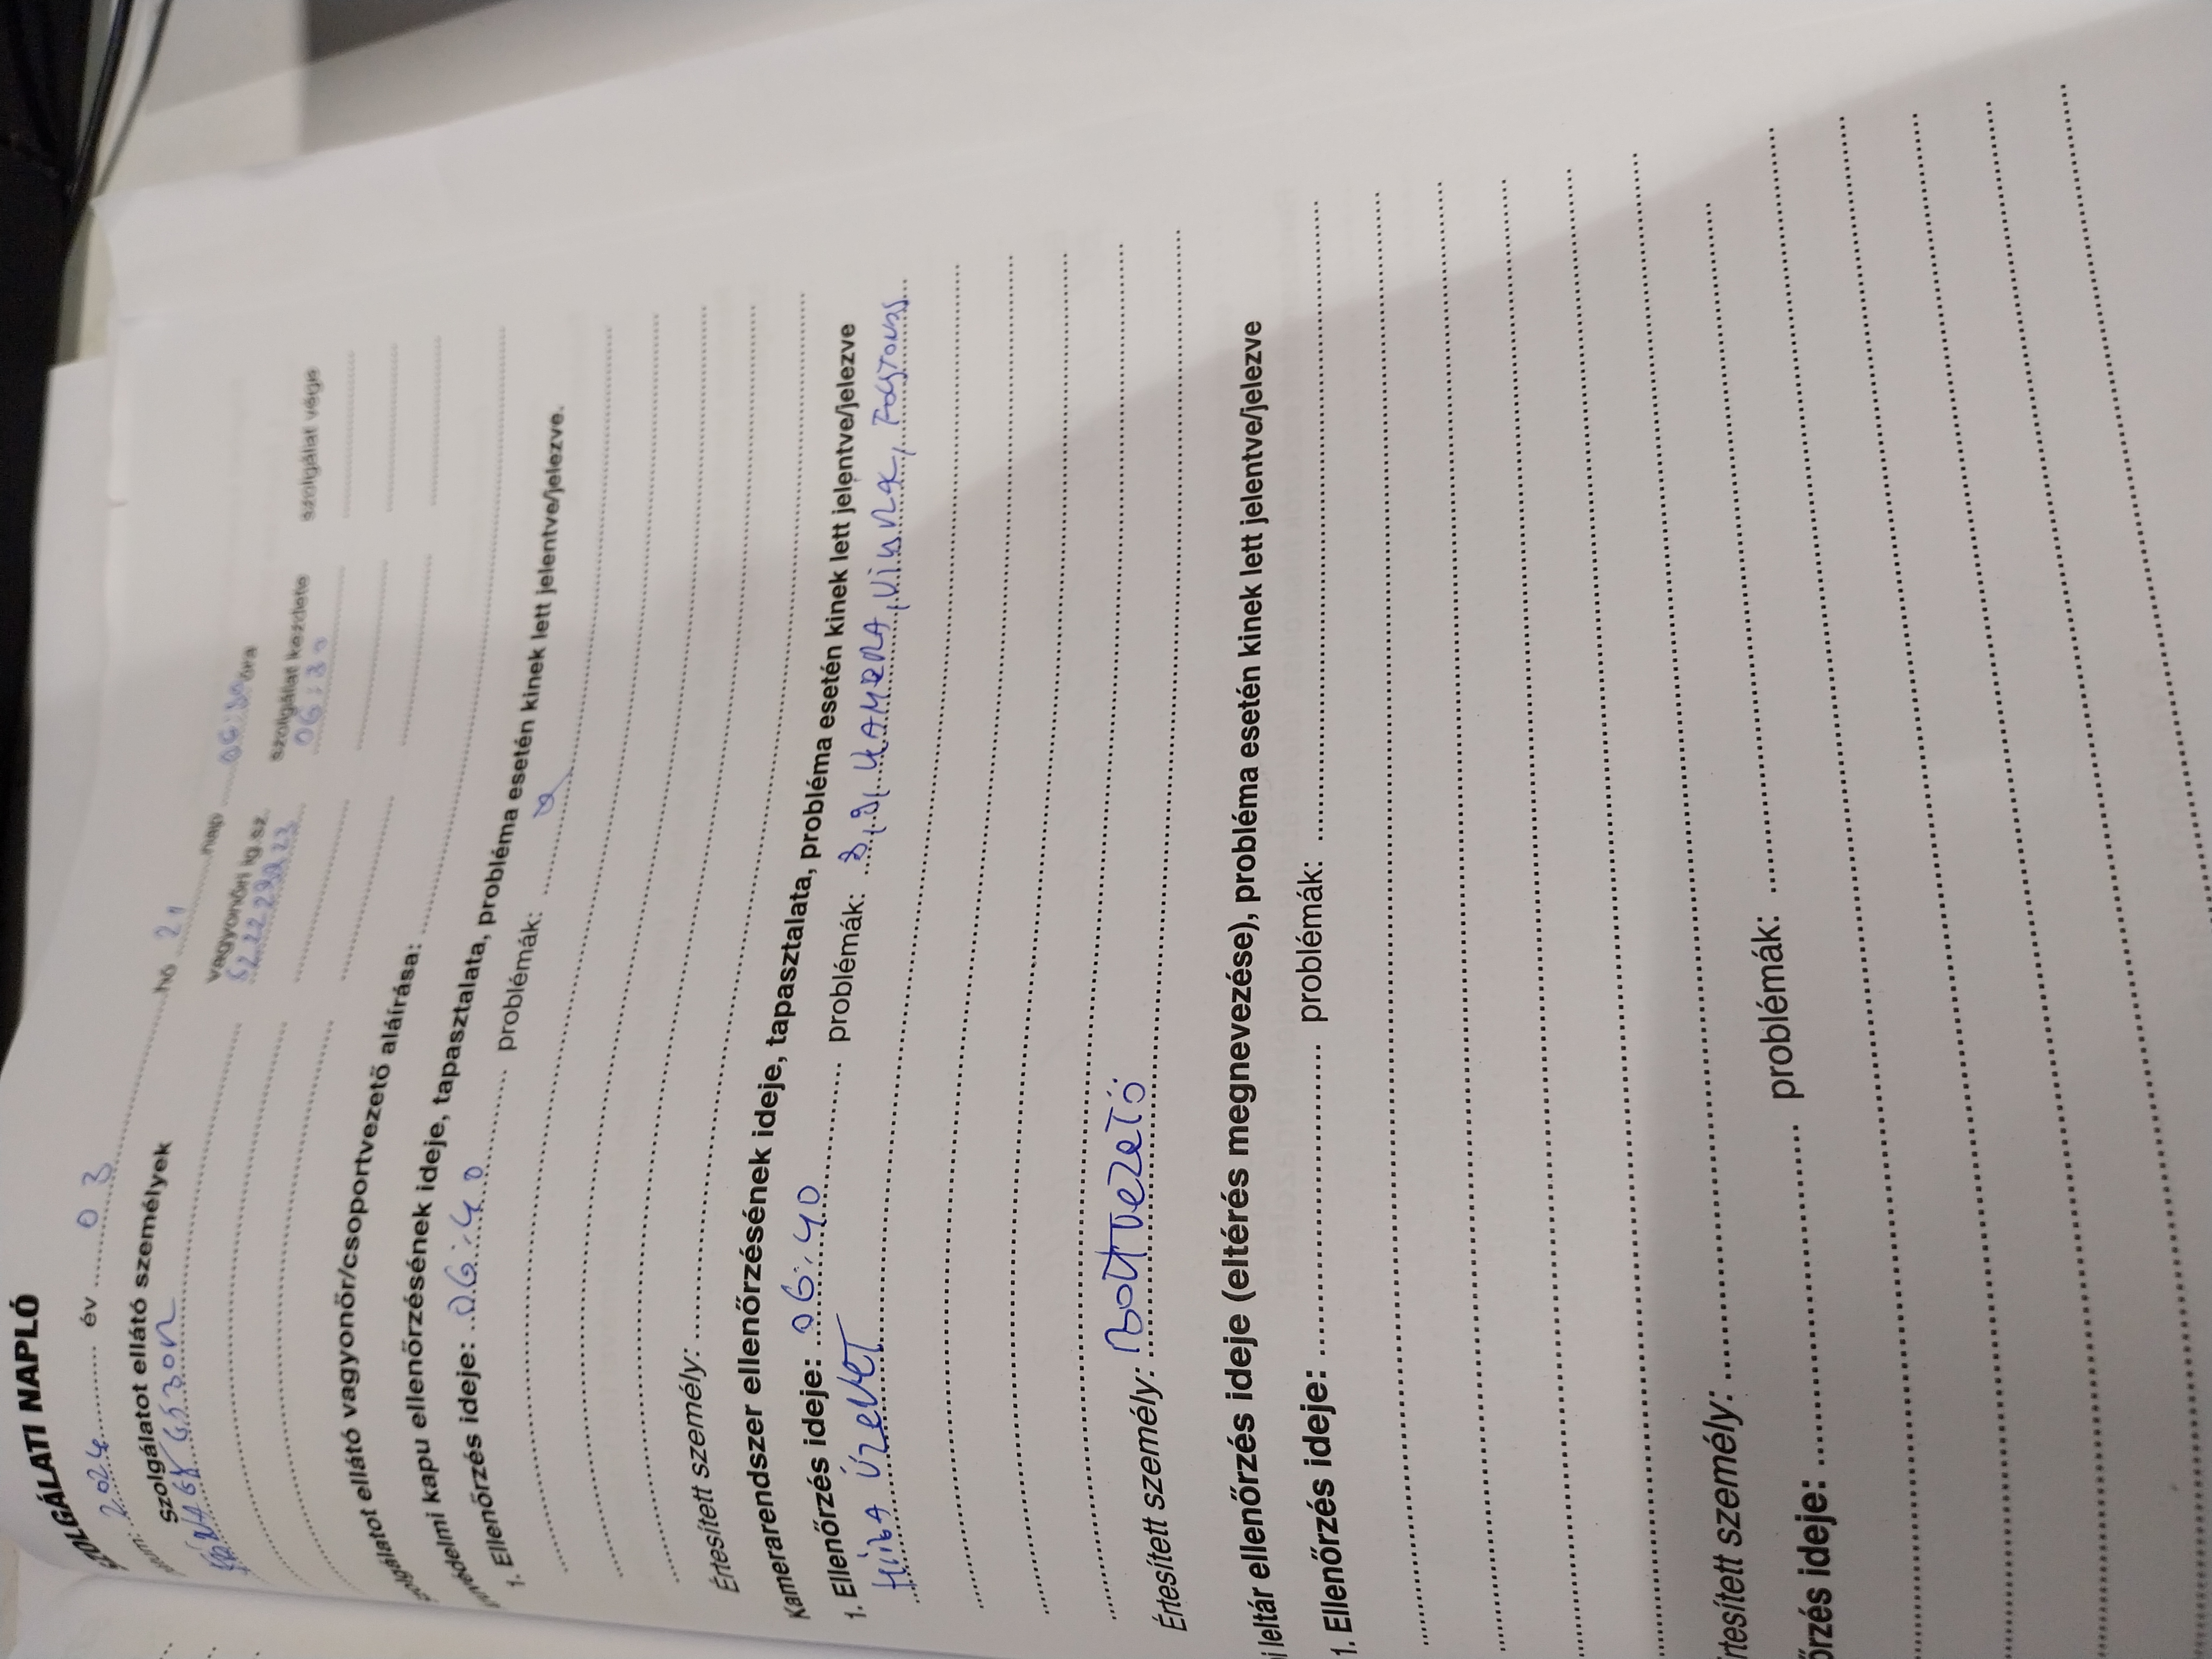 SZOLGÁLATI NAPLÓ
2024 év 03 hó 21 nap 06:30 óra
Szolgálatot ellátó személyek vagyonőri ig.sz. szolgálat kezdete szolgálat vége
06:30
szolgálatot ellátó vagyonőr/csoportvezető aláírása:
kapu ellenőrzésének ideje, tapasztalata, probléma esetén kinek lett jelentve/jelezve.
1. Ellenőrzés ideje: 06:40 problémák:
Értesített személy:
Kamerarendszer ellenőrzésének ideje, tapasztalata, probléma esetén kinek lett jelentve/jelezve
1. Ellenőrzés ideje: 06:40 problémák: KAMERA
HIBA ÜZENET
Értesített személy: BOLTVEZETŐ
leltár ellenőrzés ideje (eltérés megnevezése), probléma esetén kinek lett jelentve/jelezve
1. Ellenőrzés ideje: problémák:
rtesített személy:
őrzés ideje: problémák: